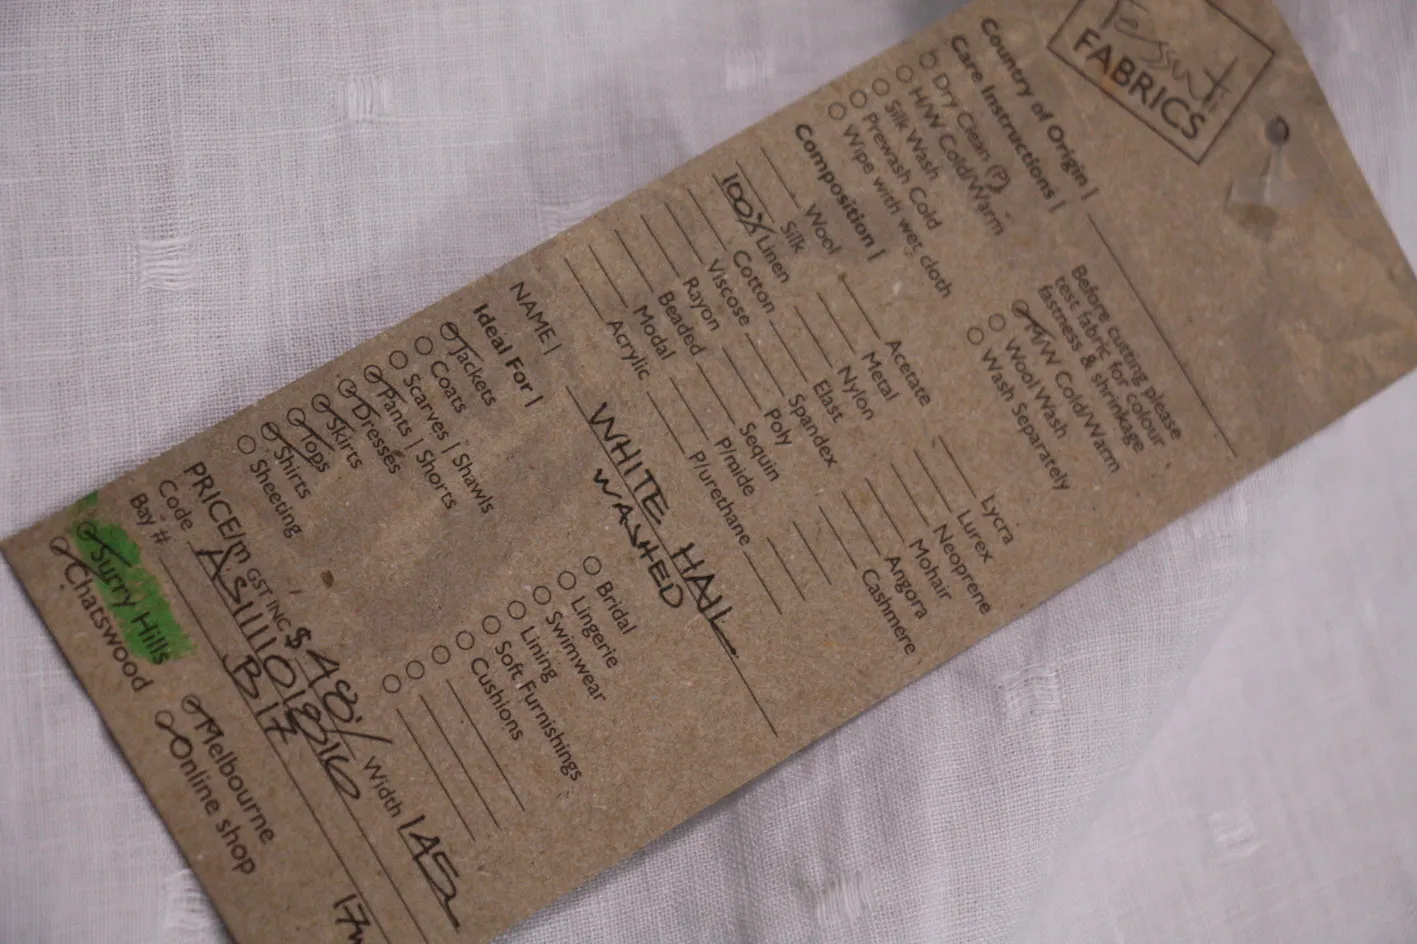 Tessuti
FABRICS
Country of Origin |
Care Instructions |
Dry Clean (P)
H/W Cold/Warm
Silk Wash
Prewash Cold
Wipe with wet cloth
Before cutting please
test fabric for colour
fastness & shrinkage
M/W Cold/Warm
Wool Wash
Wash Separately
Composition |
Wool
Silk
100% Linen
Cotton
Viscose
Rayon
Beaded
Modal
Acrylic
Acetate
Metal
Nylon
Elast
Spandex
Poly
Sequin
P/mide
P/urethane
Lycra
Lurex
Neoprene
Mohair
Angora
Cashmere
NAME | WHITE HAIL
WASHED
Ideal For |
Jackets
Coats
Scarves | Shawls
Pants | Shorts
Dresses
Skirts
Tops
Shirts
Sheeting
Bridal
Lingerie
Swimwear
Lining
Soft Furnishings
Cushions
PRICE/m GST INC $48/ Width 145
Code
Bay # B17
Surry Hills
Chatswood
Melbourne
Online shop